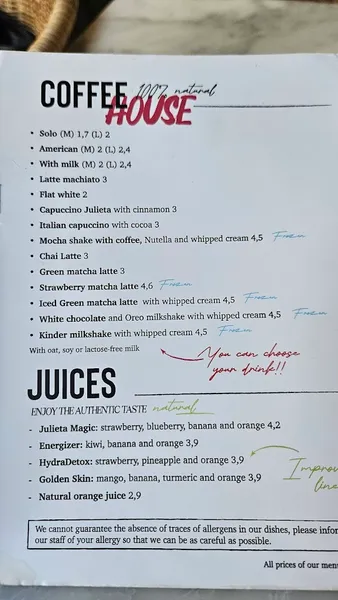 COFFEE 100% natural
HOUSE
• Solo (M) 1,7 (L) 2
• American (M) 2 (L) 2,4
• With milk (M) 2 (L) 2,4
• Latte machiato 3
• Flat white 2
• Capuccino Julieta with cinnamon 3
• Italian capuccino with cocoa 3
• Mocha shake with coffee, Nutella and whipped cream 4,5 Frozen
• Chai Latte 3
• Green matcha latte 3
• Strawberry matcha latte 4,6 Frozen
• Iced Green matcha latte with whipped cream 4,5 Frozen
• White chocolate and Oreo milkshake with whipped cream 4,5 Frozen
• Kinder milkshake with whipped cream 4,5 Frozen
With oat, soy or lactose-free milk
You can choose
your drink!!
JUICES
ENJOY THE AUTHENTIC TASTE natural
- Julieta Magic: strawberry, blueberry, banana and orange 4,2
- Energizer: kiwi, banana and orange 3,9
- HydraDetox: strawberry, pineapple and orange 3,9
- Golden Skin: mango, banana, turmeric and orange 3,9
- Natural orange juice 2,9
Improv
We cannot guarantee the absence of traces of allergens in our dishes, please infor
our staff of your allergy so that we can be as careful as possible.
All prices of our men